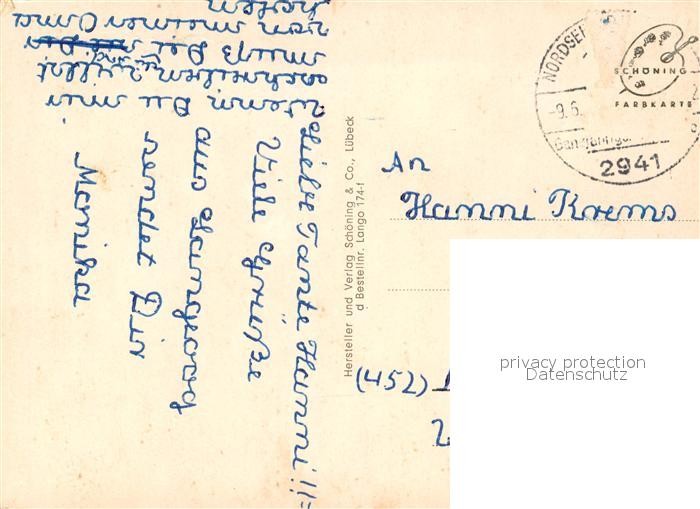 Liebe Tante Hanni!!!
Viele Grüße
aus Langeoog
sendet Dir
Monika
wenn Du mir
schreiben willst
mußt Du
von meiner Oma
Hersteller und Verlag Schöning & Co., Lübeck
d Bestellnr. Lango 174-f
NORDSEE
-9.6.
2941
SCHÖNING
FARBKARTE
An
Hanni Krems
(452)
privacy protection
Datenschutz